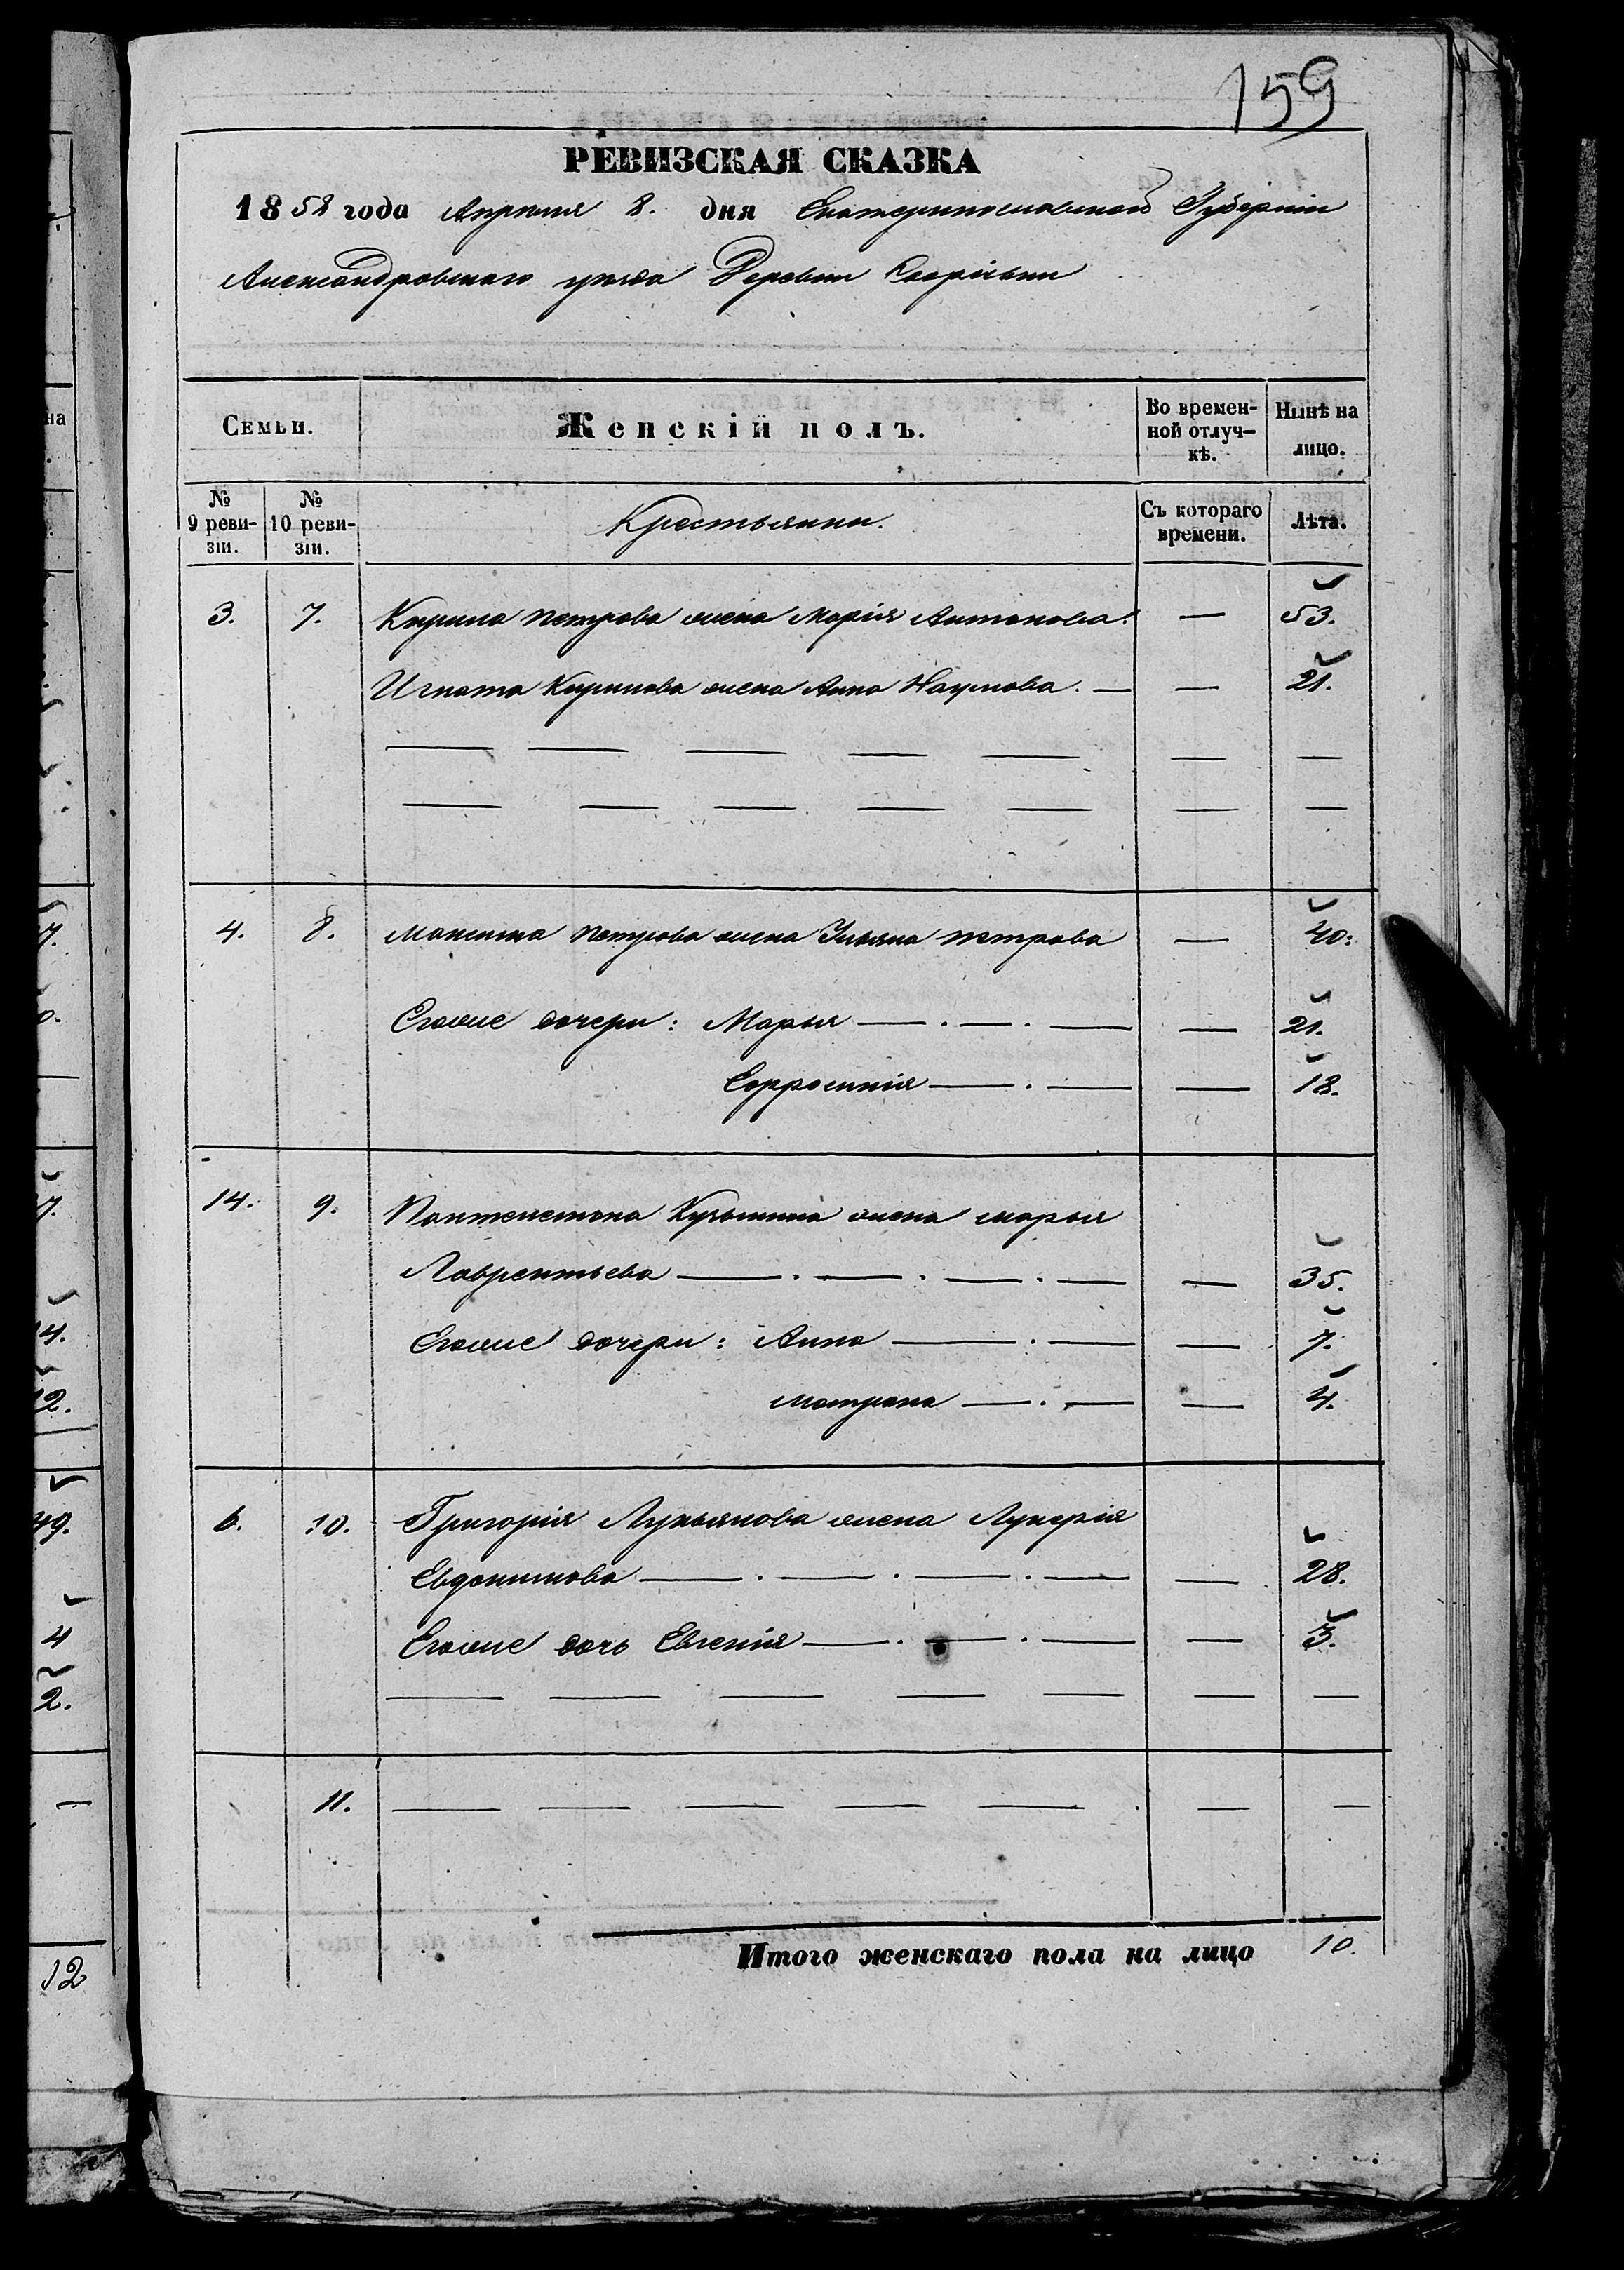 159
РЕВИЗСКАЯ СКАЗКА
1858 года Апреля 8. дня Екатеринославской Губернiи
Александровскаго уезда Деревни
Семьи. Женскій полъ. Во времен-ной отлуч-кѣ. Нынѣ на лицо.
№ 9 реви-зіи. № 10 реви-зіи. Крестьянки. Съ котораго времени. Лѣта.
3. 7. Кирила Петрова жена Марія Антонова. — 53.
Игната Кирилова жена Анна Наумова. — — 21.
— — — — — — —
— — — — — — —
4. 8. Максима Петрова жена Ульяна Петрова — 40.
Егоже дочери: Марья — . — . — — 21.
Ефросинія — . — — 18.
14. 9. Пантелемона Кузьмина жена Марья
Лаврентьева — . — . — . — — 35.
Егоже дочери: Анна — . — — 7.
Матрона — . — — 4.
6. 10. Григорія Лукьянова жена Лукерія
Евдокимова — . — . — . — — 28.
Егоже дочь Евгенія — . — . — — 3.
— — — — — — —
11. — — — — — — —
Итого женскаго пола на лицо 10.
на
7.
0.
7.
14.
12.
49.
4
2.
—
12